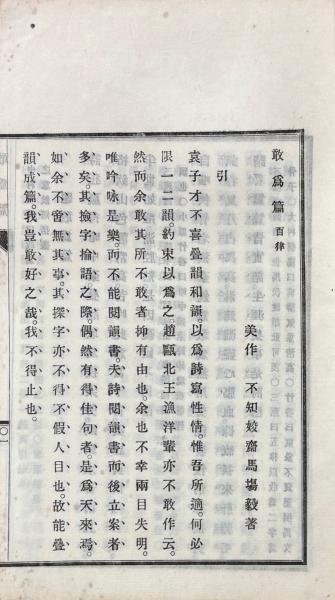 敢爲篇 百律
美作 不知姣齋馬場毅著
引
袁子才不喜疊韻和韻。以爲詩寫性情。惟吾所適。何必
限一二韻。約束以爲之。趙甌北王漁洋輩亦不敢作云。
然而余敢其所不敢者。抑有由也。余也不幸兩目失明。
唯吟咏是樂。而不能閱韻書。夫詩閱韻書。而後立案者
多矣。其撿字揄語之際。偶然有得佳句者。是爲天來焉。
如余不啻無其事。其探字亦不得不假人目也。故能疊
韻成篇。我豈敢好之哉。我不得止也。